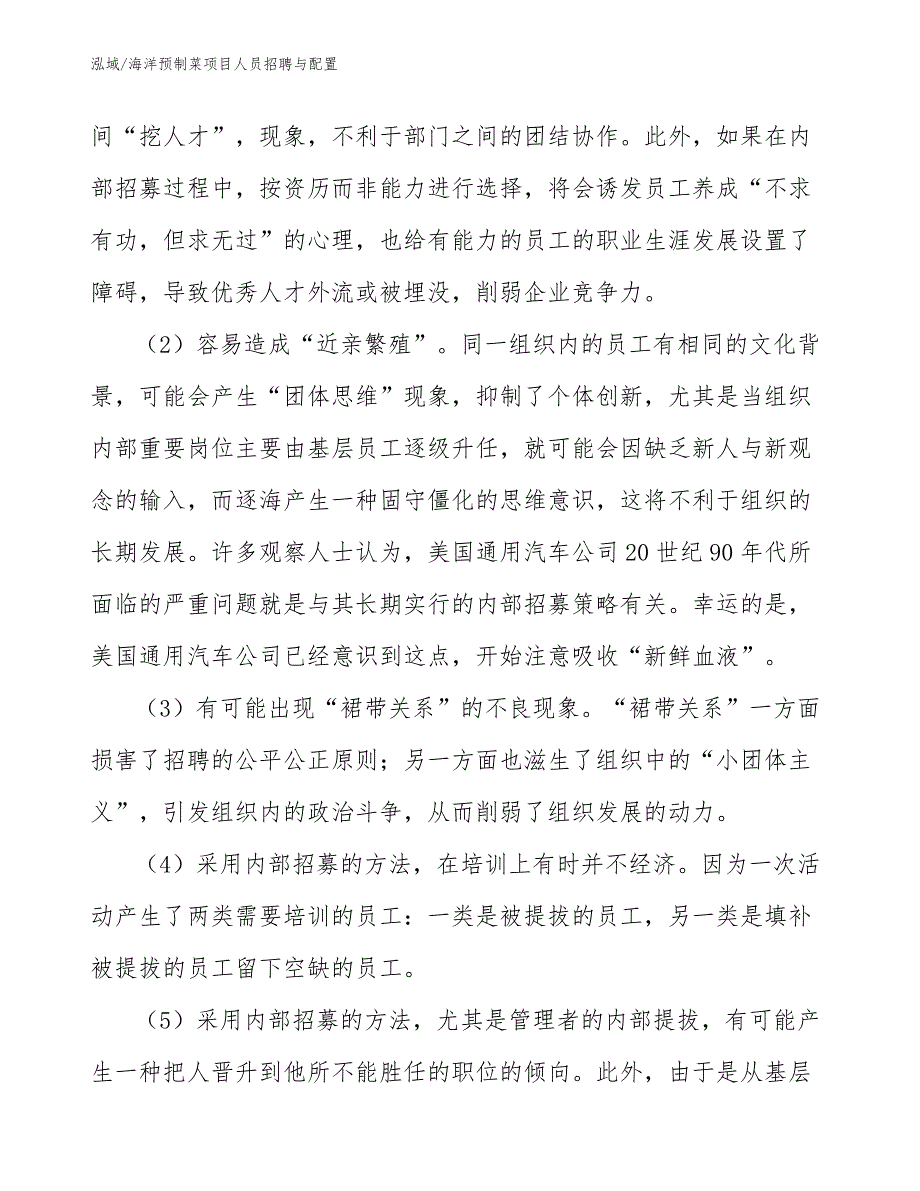 泓域/海洋预制菜项目人员招聘与配置
间“挖人才”，现象，不利于部门之间的团结协作。此外，如果在内
部招募过程中，按资历而非能力进行选择，将会诱发员工养成“不求
有功，但求无过”的心理，也给有能力的员工的职业生涯发展设置了
障碍，导致优秀人才外流或被埋没，削弱企业竞争力。
（2）容易造成“近亲繁殖”。同一组织内的员工有相同的文化背
景，可能会产生“团体思维”现象，抑制了个体创新，尤其是当组织
内部重要岗位主要由基层员工逐级升任，就可能会因缺乏新人与新观
念的输入，而逐海产生一种固守僵化的思维意识，这将不利于组织的
长期发展。许多观察人士认为，美国通用汽车公司 20 世纪 90 年代所
面临的严重问题就是与其长期实行的内部招募策略有关。幸运的是，
美国通用汽车公司已经意识到这点，开始注意吸收“新鲜血液”。
（3）有可能出现“裙带关系”的不良现象。“裙带关系”一方面
损害了招聘的公平公正原则；另一方面也滋生了组织中的“小团体主
义”，引发组织内的政治斗争，从而削弱了组织发展的动力。
（4）采用内部招募的方法，在培训上有时并不经济。因为一次活
动产生了两类需要培训的员工：一类是被提拔的员工，另一类是填补
被提拔的员工留下空缺的员工。
（5）采用内部招募的方法，尤其是管理者的内部提拔，有可能产
生一种把人晋升到他所不能胜任的职位的倾向。此外，由于是从基层